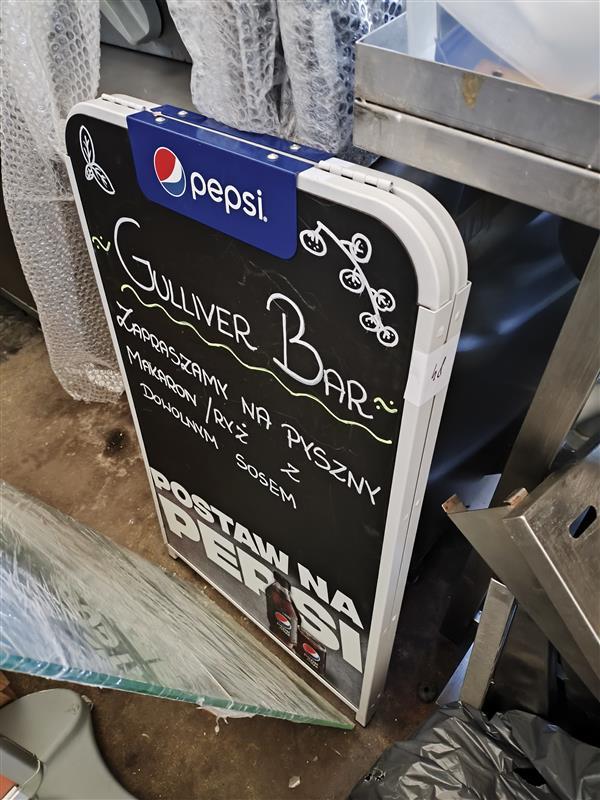 pepsi.
~ GULLIVER BAR ~
ZAPRASZAMY NA PYSZNY
MAKARON / RYŻ Z
DOWOLNYM SOSEM
POSTAW NA
PEPSI